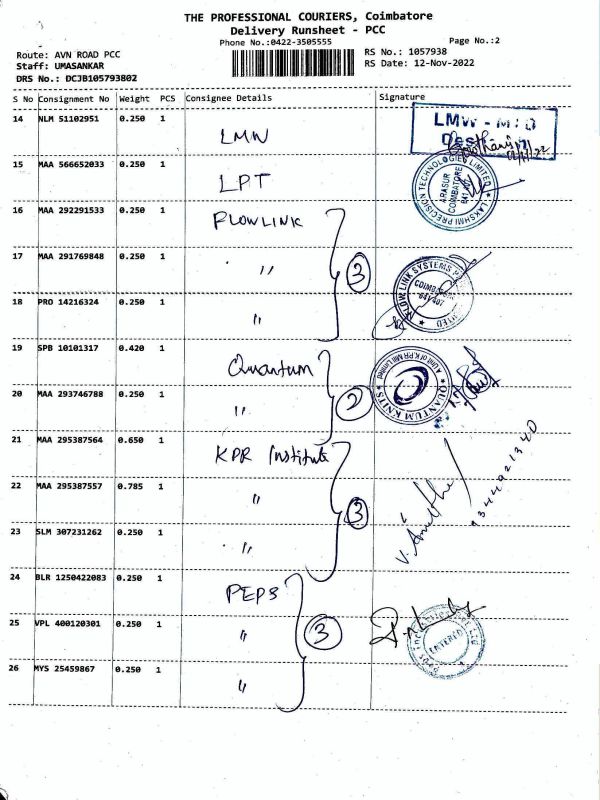 THE PROFESSIONAL COURIERS, Coimbatore
Delivery Runsheet - PCC
Phone No.:0422-3505555
Page No.:2
Route: AVN ROAD PCC
RS No.: 1057938
Staff: UMASANKAR
RS Date: 12-Nov-2022
DRS No.: DCJB105793802
S No Consignment No Weight PCS Consignee Details Signature
14 NLM 51102951 0.250 1 LMW
LMW - MTD
15 MAA 566652033 0.250 1 LPT
LAKSHMI PRECISION TECHNOLOGIES LIMITED
ARASUR
COIMBATORE
641 407
16 MAA 292291533 0.250 1 FLOWLINK
17 MAA 291769848 0.250 1 "
3
FLOW LINK SYSTEMS
641 407
18 PRO 14216324 0.250 1 "
19 SPB 10101317 0.420 1 Quantum
A Unit of K.P.R Mill Limited
QUANTUM KNITS
20 MAA 293746788 0.250 1 "
2
21 MAA 295387564 0.650 1 KPR Institute
22 MAA 295387557 0.785 1 "
3
9344921340
23 SLM 307231262 0.250 1 "
24 BLR 1250422083 0.250 1 PEPS
25 VPL 400120301 0.250 1 "
3
ENTERED
26 MYS 25459867 0.250 1 "